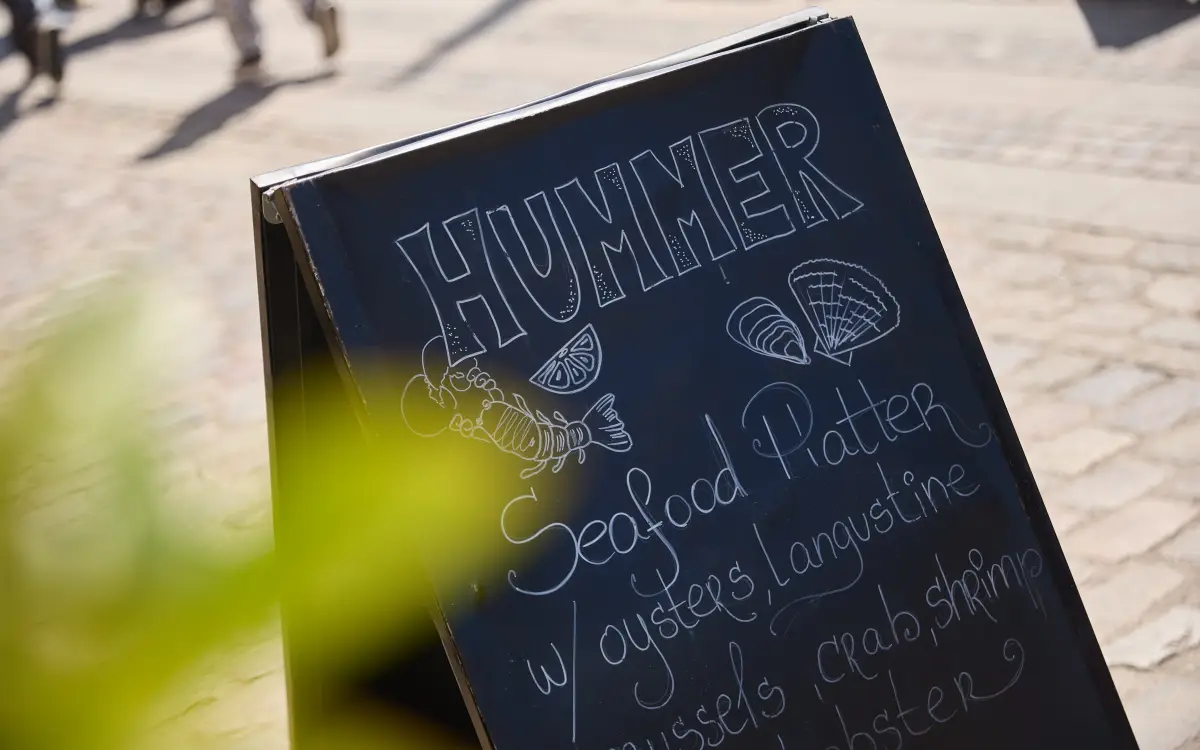 HUMMER
Seafood Platter
w/ oysters, langustine
mussels, crab, shrimp
lobster